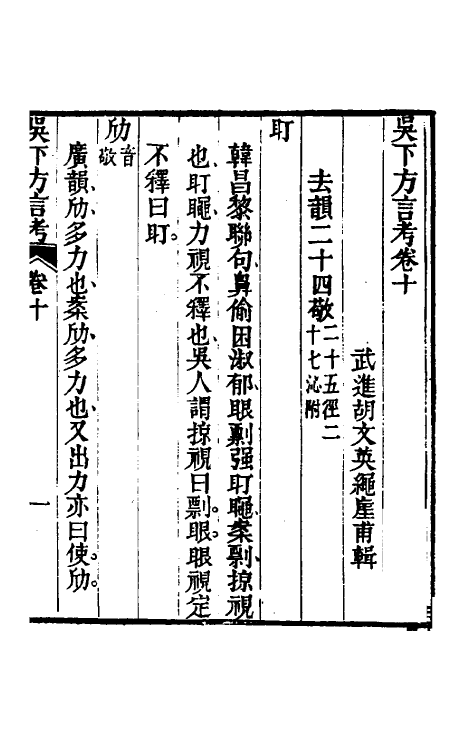 吳下方言考卷十
武進胡文英繩崖甫輯
去韻二十四敬二十五徑二十七沁附
盯
韓昌黎聯句鼻偷困淑郁眼剽强盯𥋝案剽掠視
也盯𥋝力視不釋也吳人謂掠視曰剽眼眼視定
不釋曰盯
劤音敬
廣韻劤多力也案劤多力也又出力亦曰使劤
吳下方言考 卷十 一